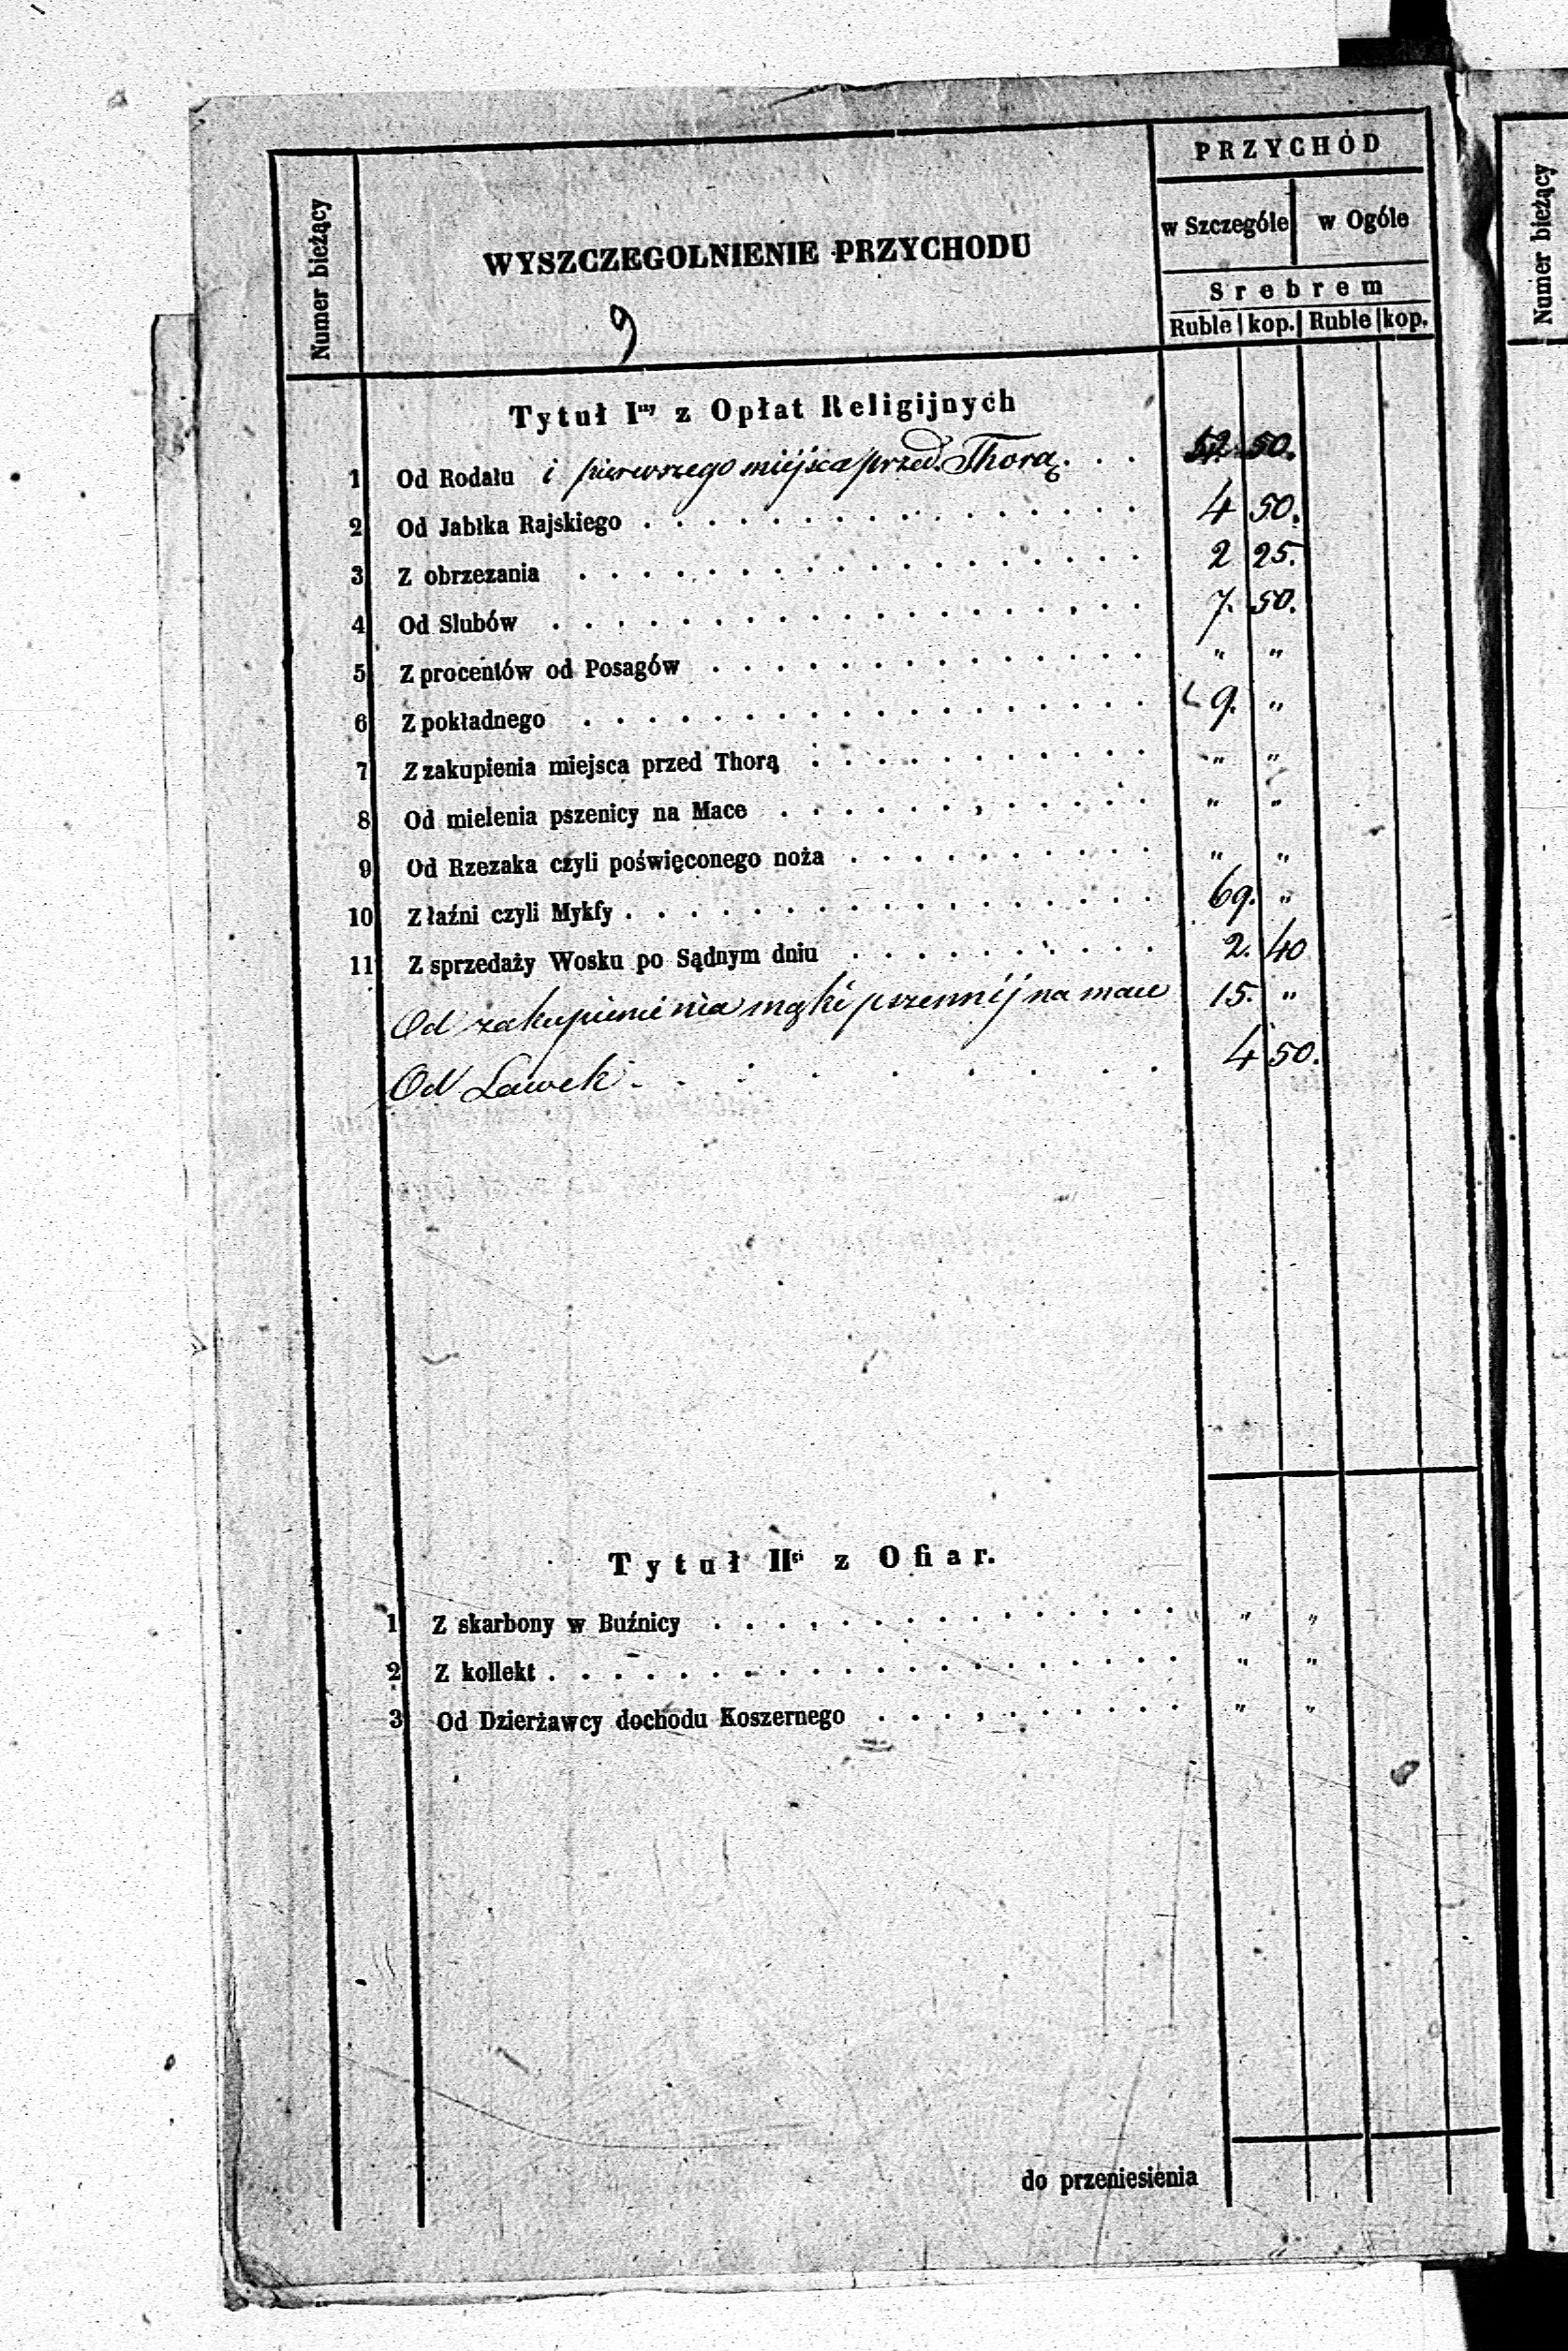 PRZYCHÓD
Numer bieżący
WYSZCZEGOLNIENIE PRZYCHODU
w Szczególe w Ogóle
Srebrem
Ruble kop. Ruble kop.
9
Tytuł Iny z Opłat Religijnych
1 Od Rodału i pierwszego miejsca przed Thorą . . . 50.
2 Od Jabłka Rajskiego . . . 4 50.
3 Z obrzezania . . . 2 25.
4 Od Slubów . . . 7. 50.
5 Z procentów od Posagów . . . " "
6 Z pokładnego . . . 9. "
7 Z zakupienia miejsca przed Thorą . . . " "
8 Od mielenia pszenicy na Mace . . . " "
9 Od Rzezaka czyli poświęconego noża . . . " "
10 Z łaźni czyli Mykfy . . . 69. "
11 Z sprzedaży Wosku po Sądnym dniu . . . 2. 40
Od mąki pszennij na mace 15. "
Od Ławek . . . 4 50.
Tytuł IIgi z Ofiar.
1 Z skarbony w Buźnicy . . . " "
2 Z kollekt . . . " "
3 Od Dzierżawcy dochodu Koszernego . . . " "
do przeniesienia
Numer bieżący